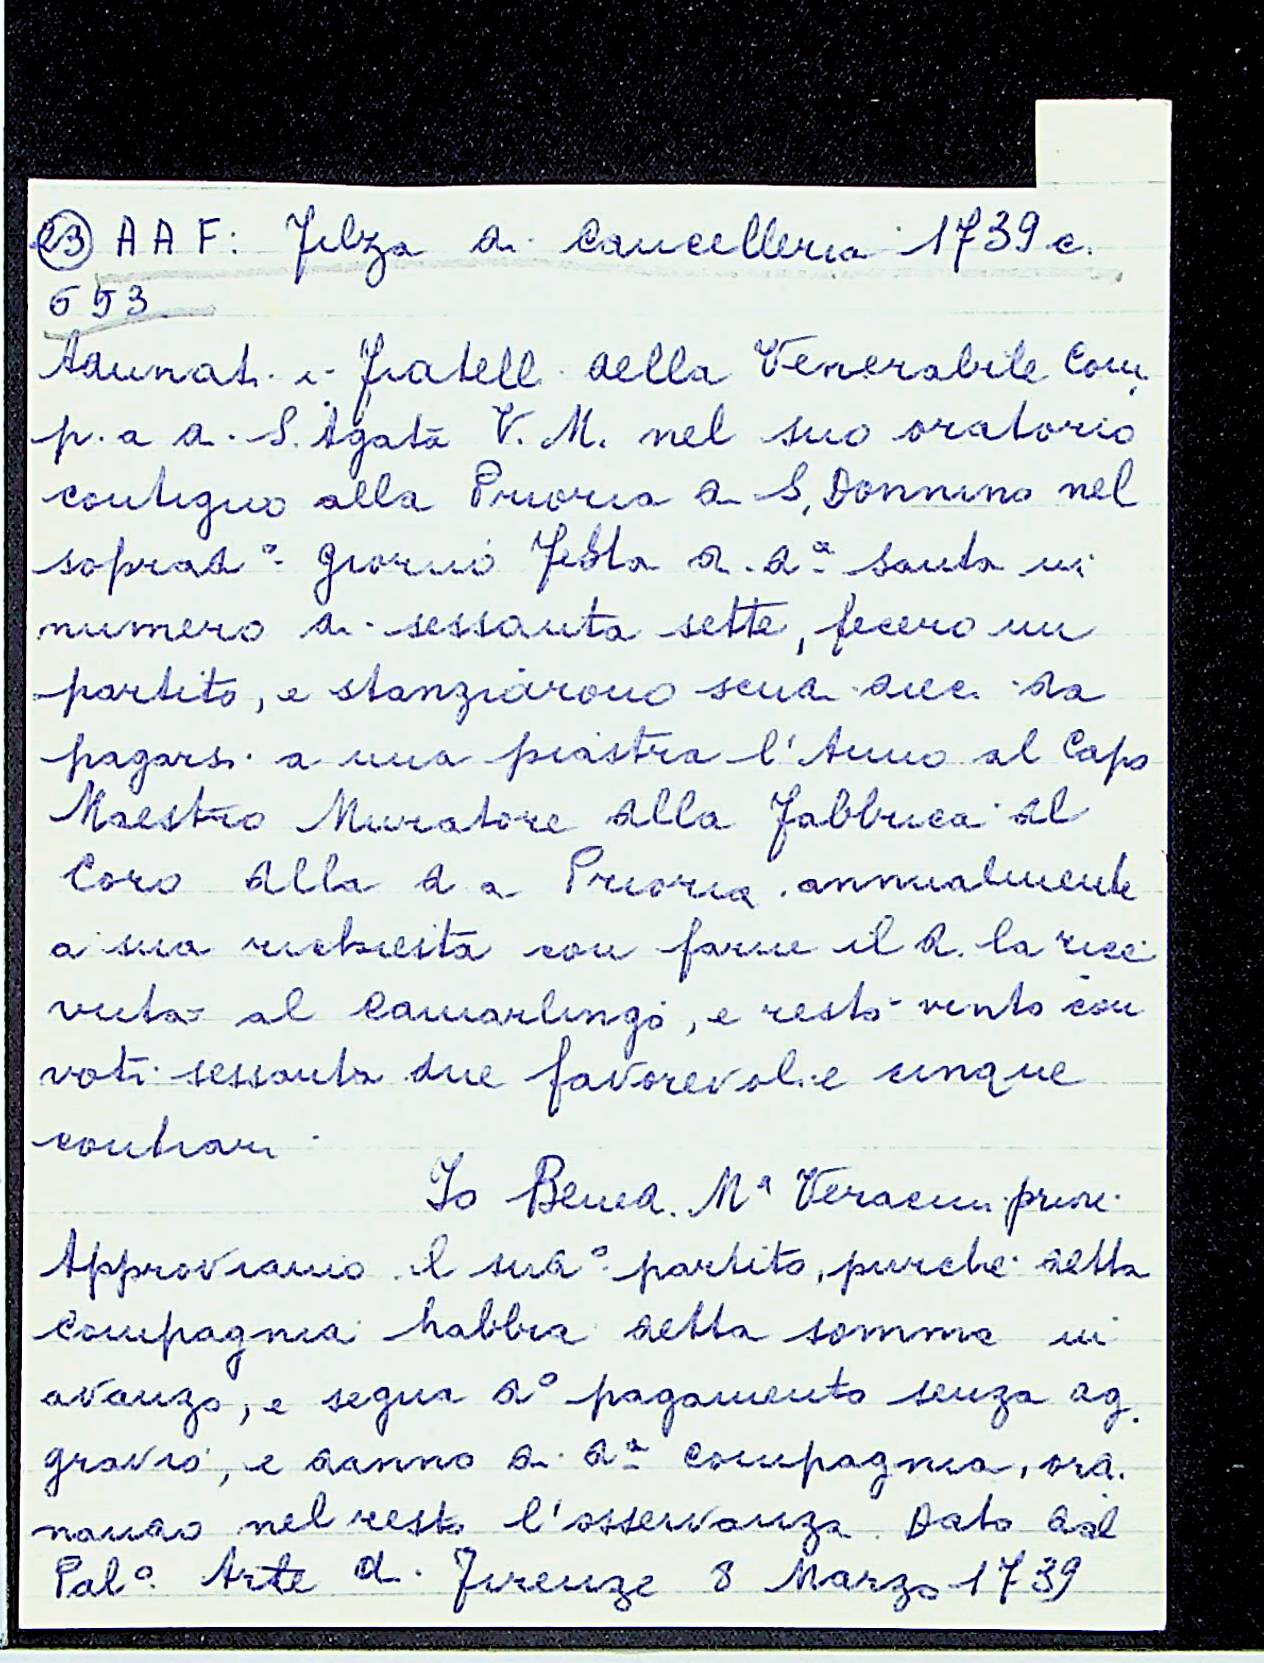 23 A A F: Filza di Cancelleria 1739 c.
653
Adunati i Fratelli della Venerabile Com,
p.a di S. Agata V. M. nel suo oratorio
contiguo alla Prioria di S. Donnino nel
soprad.º giorno Festa di d.ª Santa in
numero di sessanta sette, fecero un
partito, e stanziarono scudi dieci da
pagarsi a una piastra l'Anno al Capo
Maestro Muratore della Fabbrica del
Coro della d a Prioria annualmente
a sua richiesta con farne il d. la rice
vuta al Camarlingo, e restò vinto con
voti sessanta due favorevoli e cinque
contrari.
Io Bened. Mª Veracini priore
Approviamo il sudº partito, purche detta
compagnia habbia detta somma in
avanzo, e segua dº pagamento senza ag.
gravio, e danno di dª compagnia, ord.
nando nel resto l'osservanza. Dato dal
Palº Arte di Firenze 8 Marzo 1739